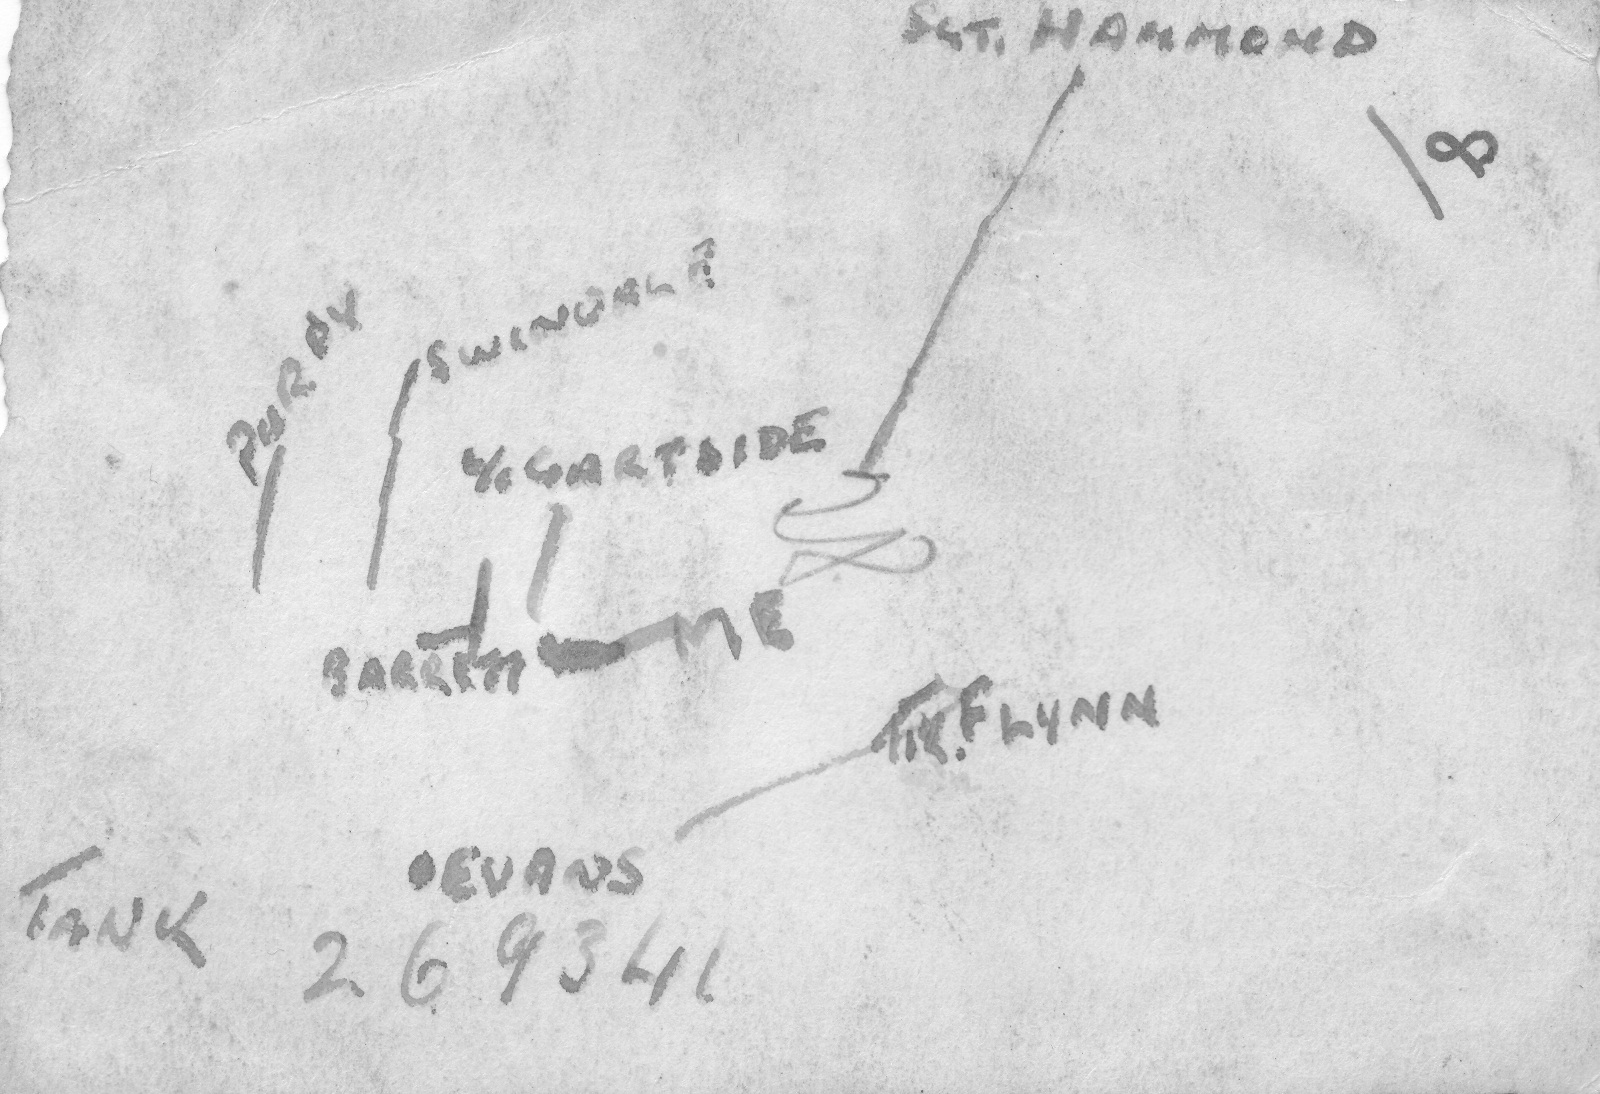 SGT. HAMMOND
8
PURDY
SWINDALE
GARTSIDE
BARRETT
ME
FLYNN
EVANS
TANK
269341